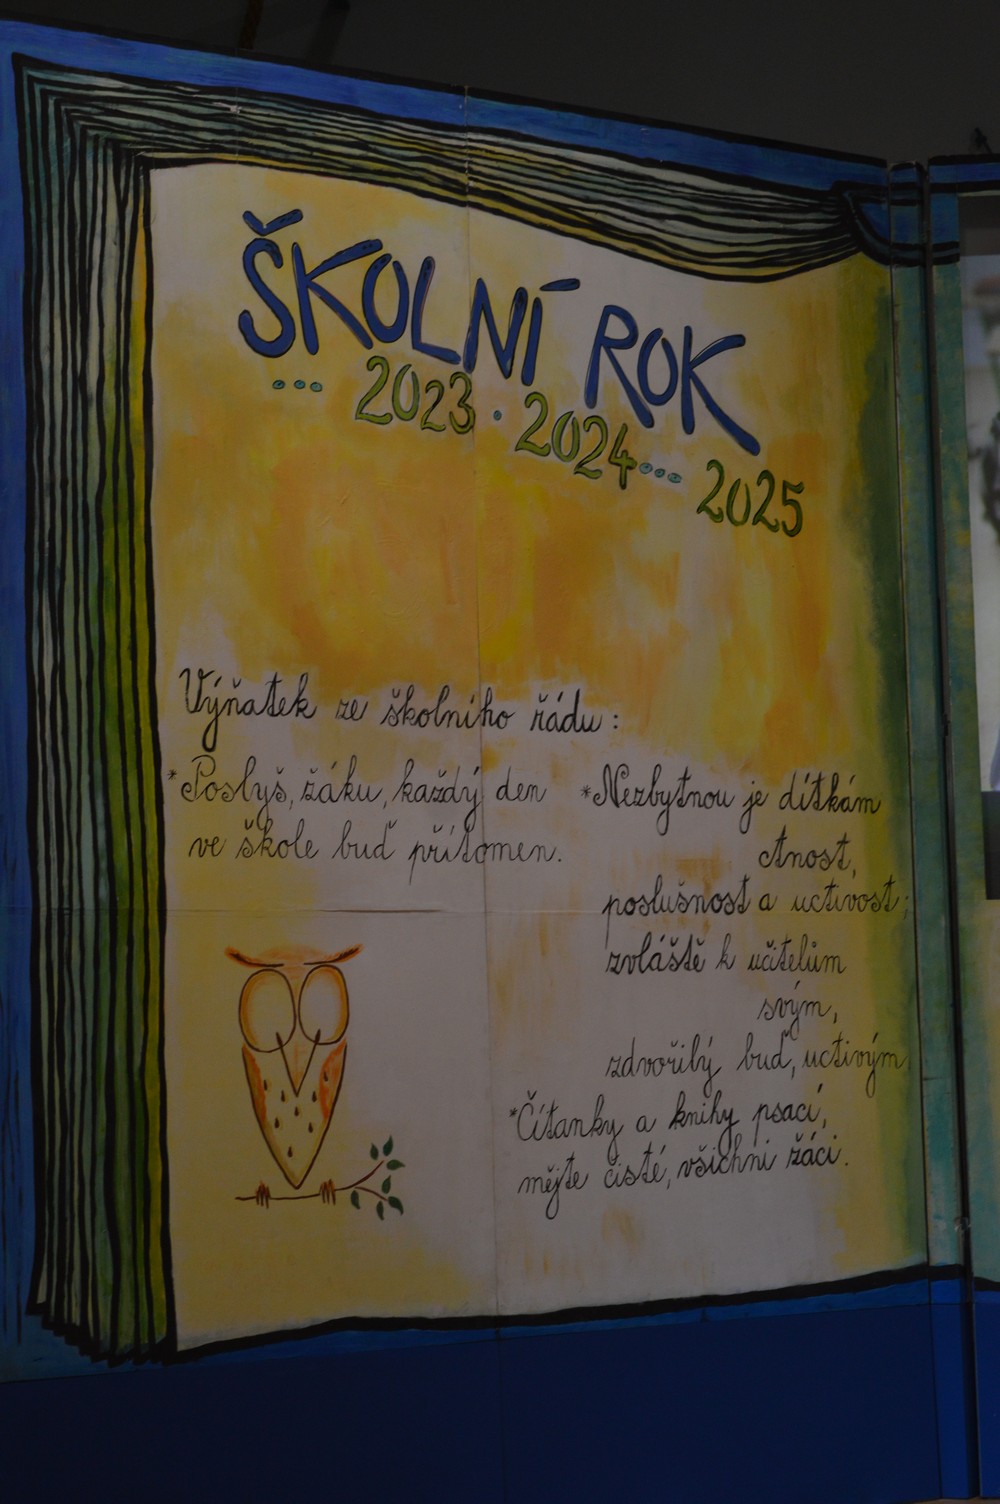 ŠKOLNÍ ROK
... 2023 · 2024 ... 2025
Výňatek ze školního řádu:
*Poslyš, žáku, každý den
ve škole buď přítomen.
*Nezbytnou je dítkám
ctnost,
poslušnost a uctivost;
zvláště k učitelům
svým,
zdvořilý buď, uctivým
*Čítanky a knihy psací,
mějte čisté, všichni žáci.